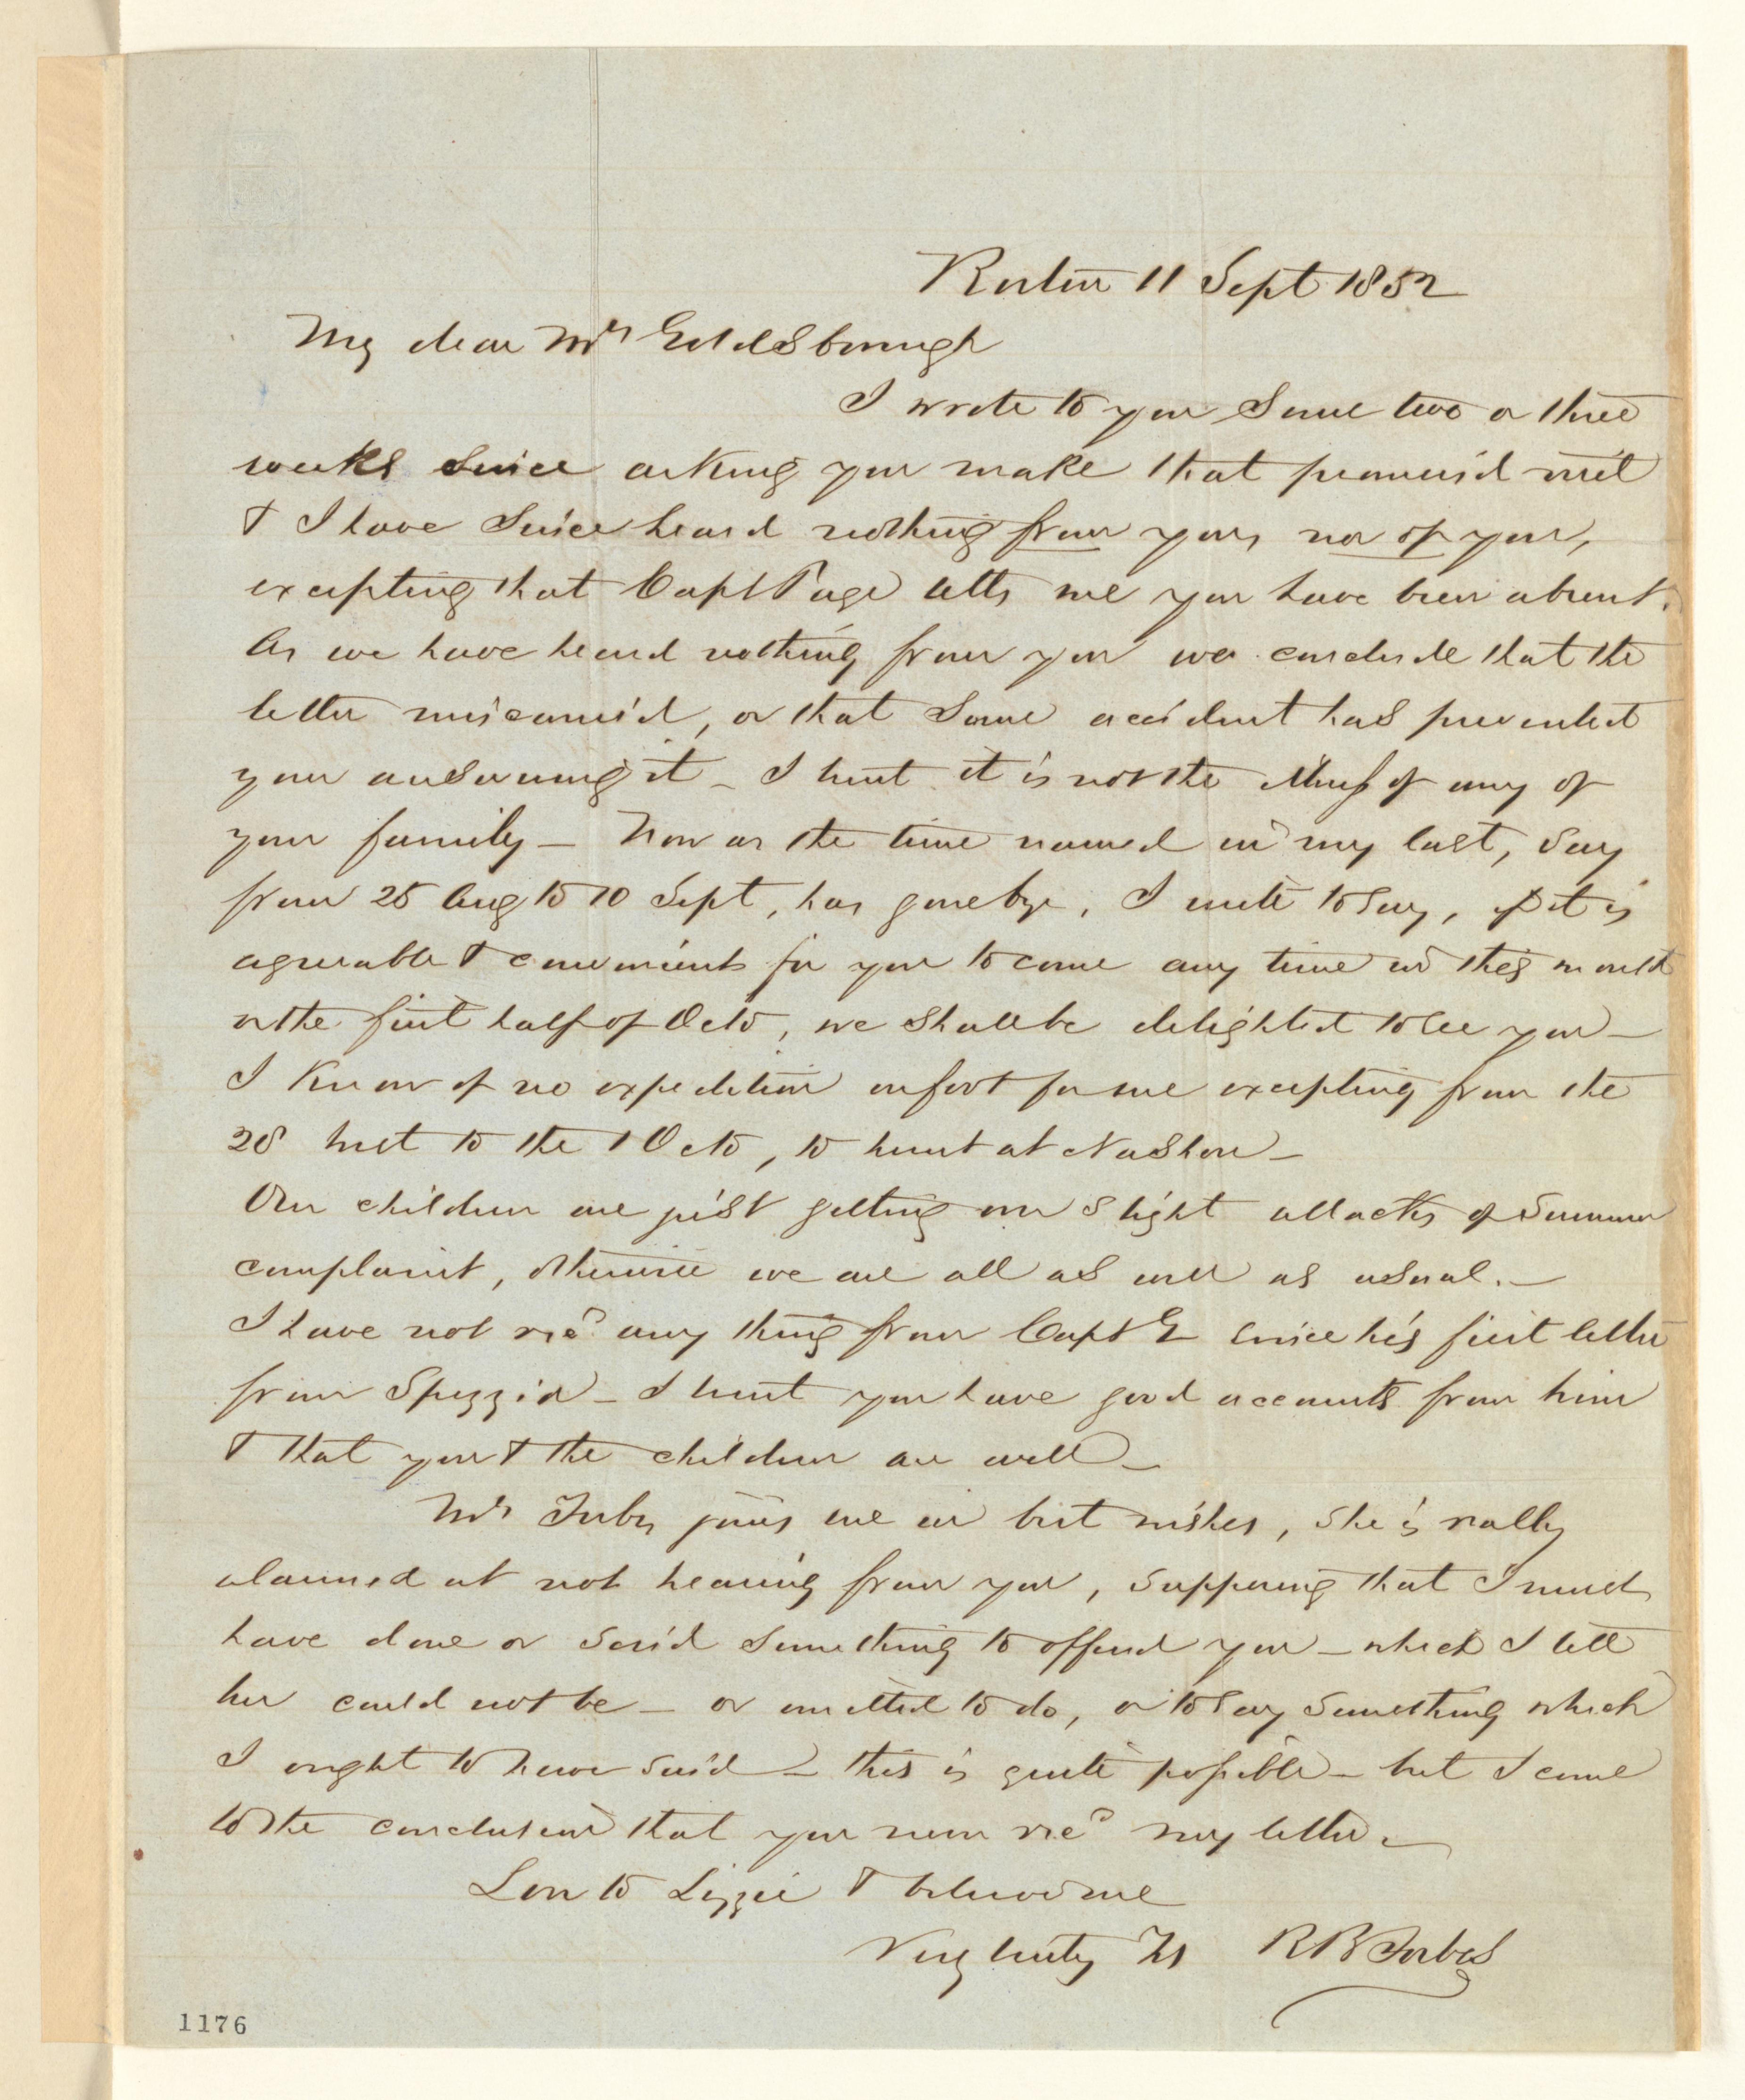 Boston 11 Sept 1852
My dear Mrs Goldsborough
I wrote to you some two or three
weeks since asking you make that promis'd visit
& I have since heard nothing from you, nor of you,
excepting that Capt Page tells me you have been absent.
As we have heard nothing from you we conclude that the
letter miscarried, or that some accident has prevented
your answering it - I trust it is not the illness of any of
your family - Now as the time named in my last, say
from 25 Aug to 10 Sept, has gone bye, I write to say, if it is
agreeable & convenient for you to come any time in this month
or the first half of Octo, we shall be delighted to see you -
I know of no expedition on foot for me excepting from the
28 inst to the 1 Octo, to hunt at Nashon -
Our children are just getting over slight attacks of summer
complaint, otherwise we are all as well as usual. -
I have not recd any thing from Capt G since his first letter
from Spezzia - I trust you have good accounts from him
& that you & the children are well -
Mrs Forbes joins me in best wishes, she is really
alarmed at not hearing from you, supposing that I must
have done or said something to offend you - which I tell
her could not be - or omitted to do, or to say something which
I ought to have said - this is quite possible - but I come
to the conclusion that you never recd my letter -
Love to Lizzie & believe me
Very truly Yrs R B Forbes
1176